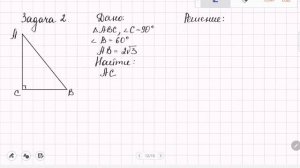 Задача 2.
Дано:
△ABC, ∠C=90°
∠B=60°
AB=2√3
Найти:
AC
Решение:
A
C
B